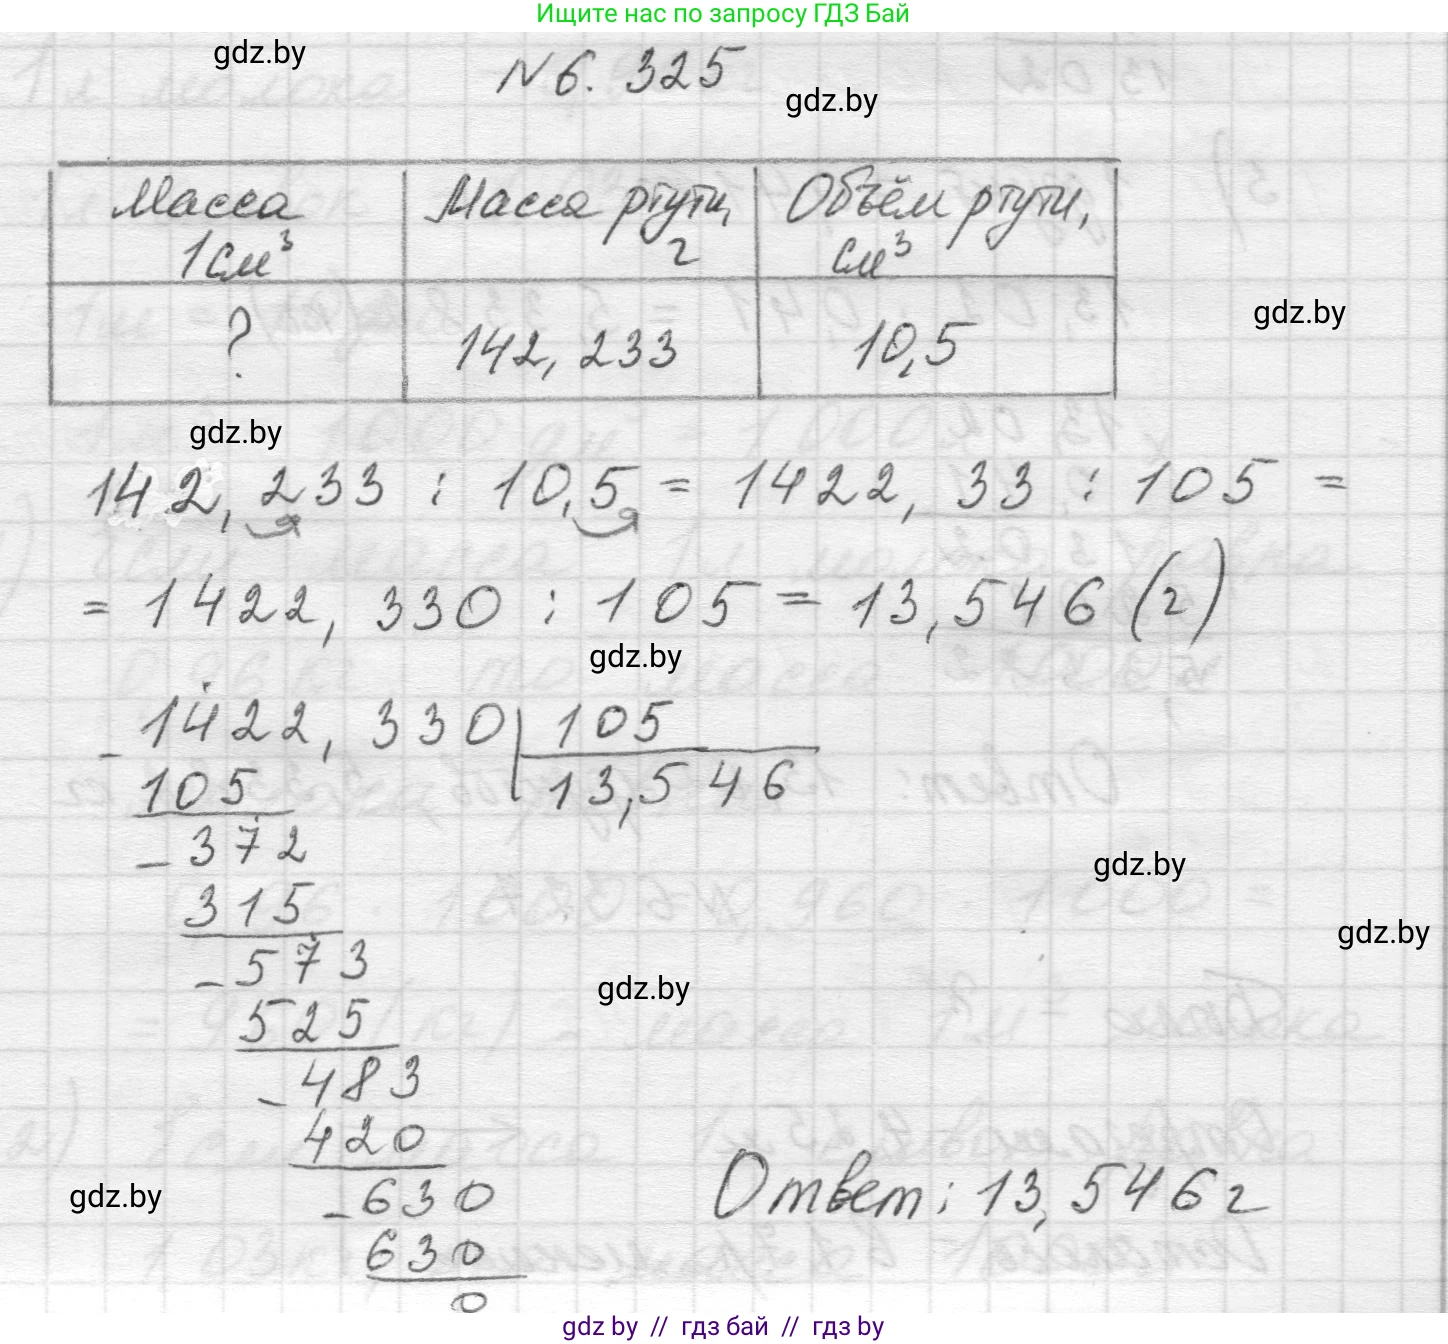 Ищите нас по запросу ГДЗ Бай
gdz.by
№ 6. 325
gdz.by
Масса 1см³ Масса ртути, г Объём ртути, см³
? 142, 233 10,5
gdz.by
gdz.by
142, 233 : 10,5 = 1422, 33 : 105 =
= 1422, 330 : 105 = 13,546 (г)
gdz.by
- 1422, 330 105
105 13,546
- 372
gdz.by
315
gdz.by
- 573
gdz.by
525
- 483
420
gdz.by
- 630 Ответ: 13,546 г
630
0
gdz.by // гдз бай // гдз by